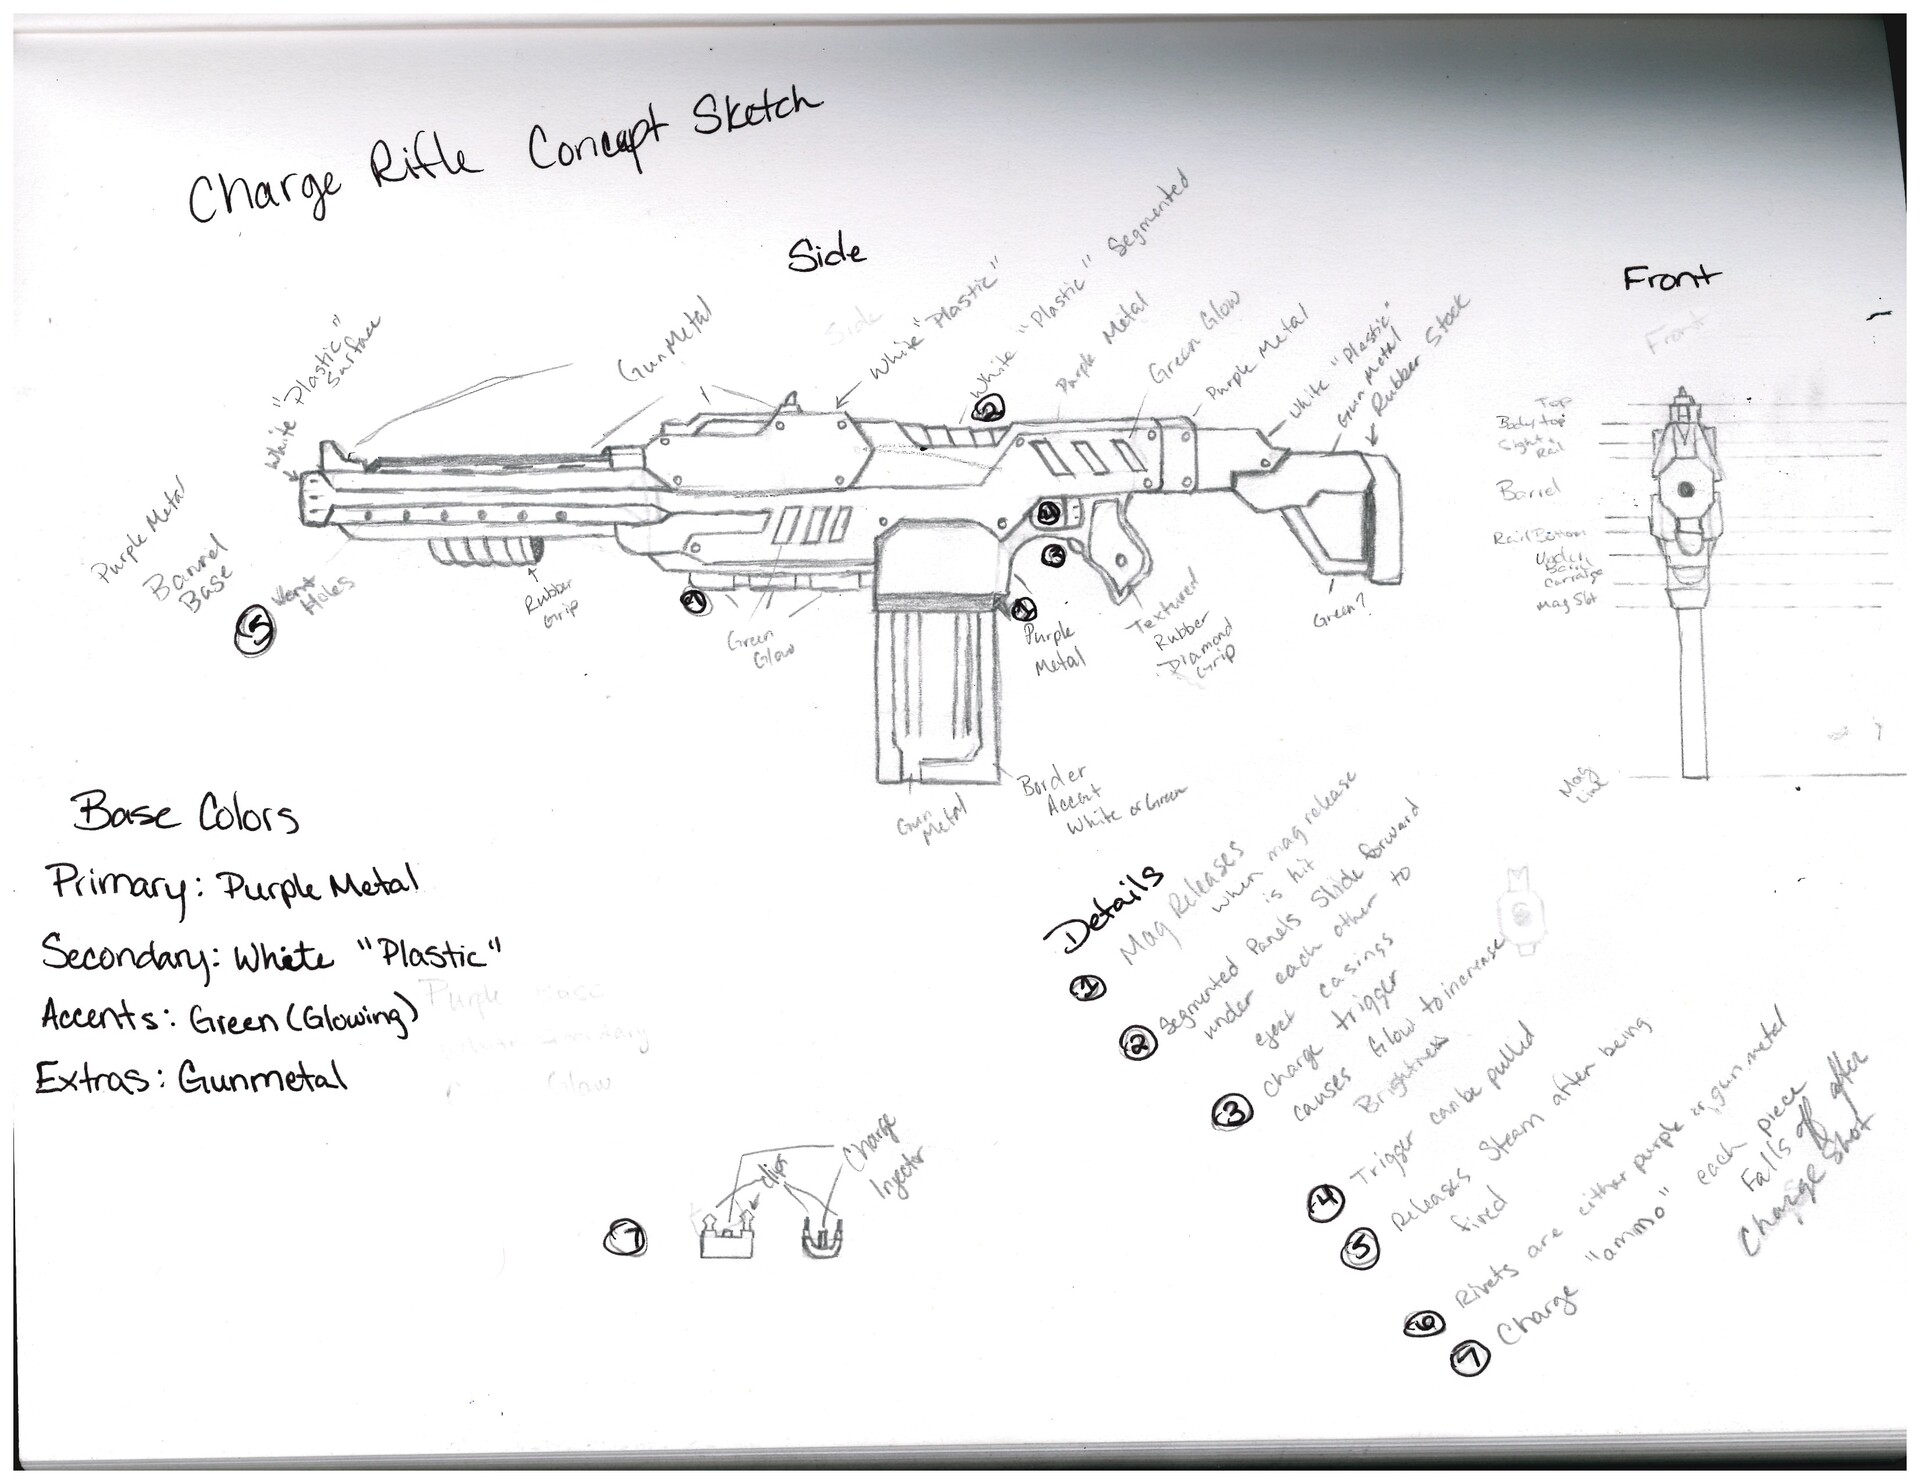 Charge Rifle Concept Sketch
Side
Front
Side
Front
White "Plastic"
Surface
GunMetal
White "Plastic"
White "Plastic" Segmented
Purple Metal
Green Glow
Purple Metal
White "Plastic"
Gun Metal
Rubber Stock
2
4
3
1
7
5
Purple Metal
Barrel
Base
Vent
Holes
Rubber
Grip
Green
Glow
Purple
Metal
Textured
Rubber
Diamond
Grip
Green?
Gun
Metal
Border
Accent
White or Green
Top
Body top
Sight
Rail
Barrel
Rail Bottom
Under
Barrel
Carraige
Mag Slot
Mag
Line
Base Colors
Primary: Purple Metal
Secondary: White "Plastic"
Accents: Green (Glowing)
Extras: Gunmetal
Purple Base
White Secondary
Glow
Details
1 Mag Releases
when mag release
is hit
2 Segmented Panels Slide forward
under each other to
eject casings
3 Charge trigger
causes Glow to increase
Brightness
4 Trigger can be pulled
5 Releases Steam after being
fired
6 Rivets are either purple or gun metal
7 Charge "ammo" each piece
Falls off after
Charge Shot
7
clips
Charge
Injector